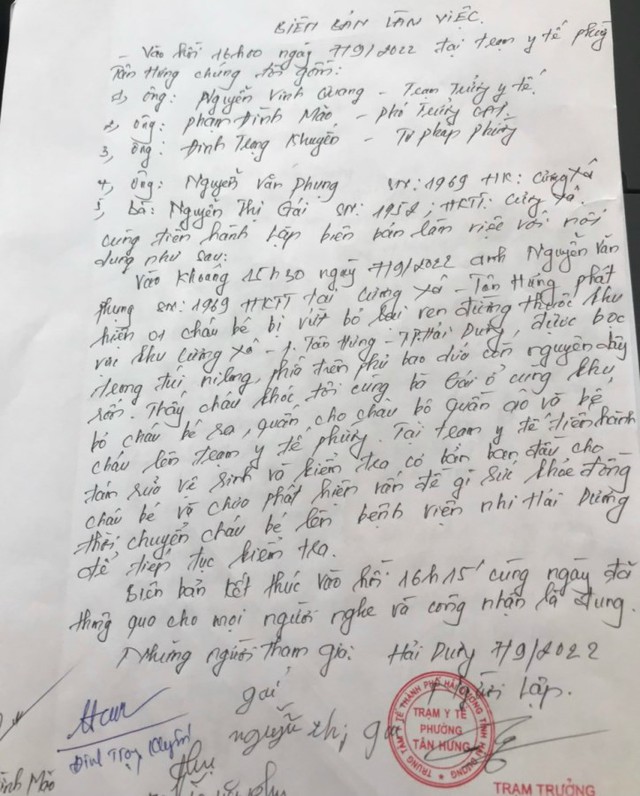 BIÊN BẢN LÀM VIỆC.
Vào hồi 16h00 ngày 7/9/2022 tại trạm y tế phường
Tân Hưng chúng tôi gồm:
1, Ông: Nguyễn Vinh Quang - Trạm Trưởng y tế.
2, Ông: Phạm Đình Mão - phó Trưởng CAP.
3, Ông: Đinh Trọng Khuyến - Tư pháp phường
4, Ông: Nguyễn Văn Phụng SN: 1969 HK: Cương Xá
5, Bà: Nguyễn Thị Gái SN: 1952; HKTT: Cương Xá.
Cùng tiến hành lập biên bản làm việc với nội
dung như sau:
Vào khoảng 15h30 ngày 7/9/2022 anh Nguyễn Văn
Phụng SN: 1969 HKTT tại Cương Xá - Tân Hưng phát
hiện 01 cháu bé bị vứt bỏ tại ven đường thuộc khu
vực khu Cương Xá - P. Tân Hưng - TP. Hải Dương, được bọc
trong túi nilong, phía trên phủ bao dứa còn nguyên dây
rốn. Thấy cháu khóc tôi cùng bà Gái ở cùng khu,
bỏ cháu bé ra, quấn cho cháu bộ quần áo và bế
cháu lên trạm y tế phường. Tại trạm y tế tiến hành
tắm rửa vệ sinh và kiểm tra cơ bản ban đầu cho
cháu bé và chưa phát hiện vấn đề gì sức khỏe đồng
thời chuyển cháu bé lên bệnh viện nhi Hải Dương
để tiếp tục kiểm tra.
Biên bản kết thúc vào hồi 16h15' cùng ngày đã
thông qua cho mọi người nghe và công nhận là đúng.
Những người tham gia: Hải Dương 7/9/2022
Người lập.
gái
nguyễn thị gái
Đinh Trọng Khuyến
Đình Mão
TRUNG TÂM Y TẾ THÀNH PHỐ HẢI DƯƠNG TỈNH HẢI DƯƠNG
TRẠM Y TẾ
PHƯỜNG
TÂN HƯNG
TRẠM TRƯỞNG